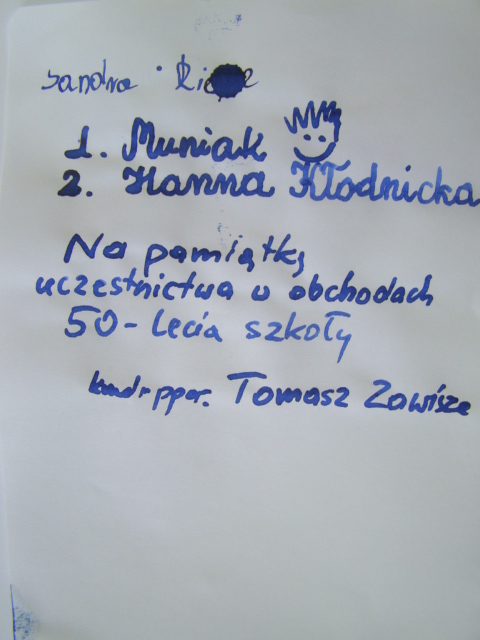 Sandra
1. Muniak
2. Hanna Kłodnicka
Na pamiątkę
uczestnictwa w obchodach
50-lecia szkoły
kmdr ppor. Tomasz Zawisza